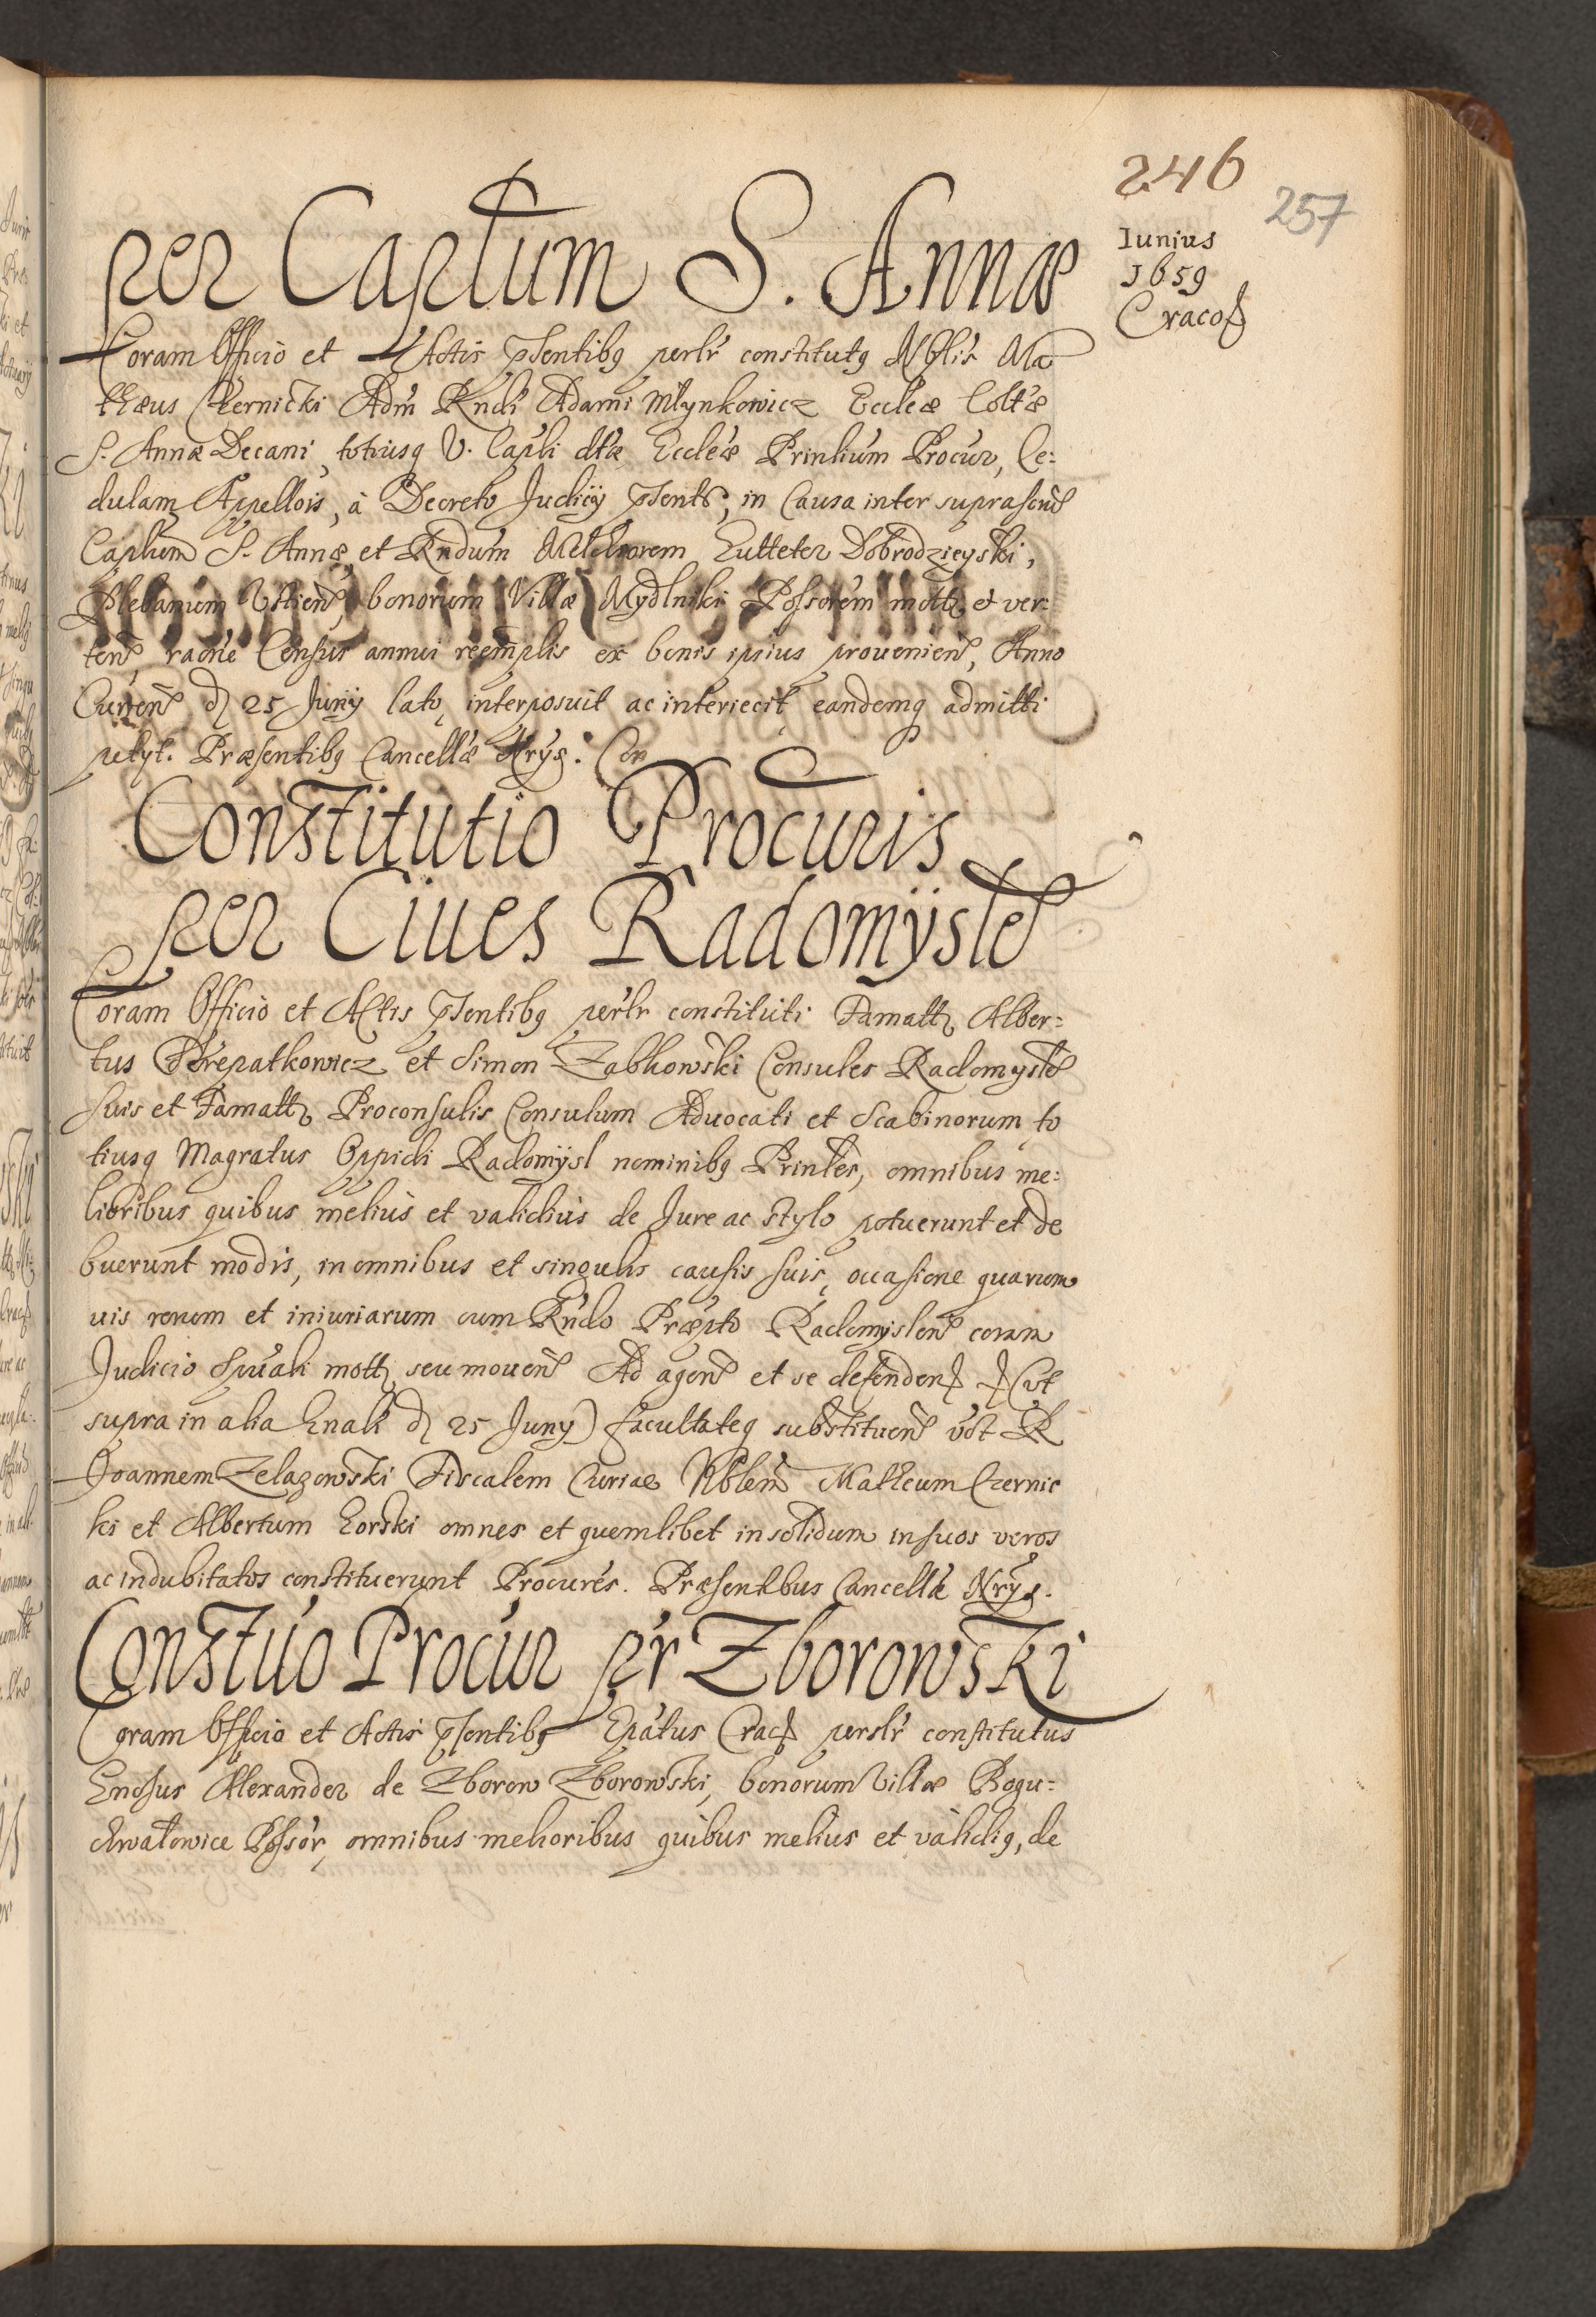 246
257
Iunius
1659
Cracoꝟ
per Capłum S. Annæ
Coram Officio et Actis pſentibꝫ perlr̃ constitutꝫ Nb̃lis Ma
thæus Czernicki Adm̃ Rndi Adami Młynkowicz Eccleæ Colt̃æ
S. Annæ Decani, totiusqꝫ V. Capłi dt̃æ Eccleæ Prinlium Procur, Ce:
dulam Appellõis, à Decreto Judicij pſentꝭ, in Causa inter suprascrip̃
Capłum S. Annæ, et Rndum Melchiorem Dobrodzieyski,
Plebanum bonorum Villæ Mydlniki Poſsorem mott̃, et ver:
ten̄ raõne Censuſ annui reemp̃lis ex bonis ipsius prouenien̄, Anno
Curren̄ d̃ 25 Junij lato, interposuit ac interiecit eandemqꝫ admitti
petyt. Præsentibꝫ Cancellæ Nrys.
Constitutio Procuris
per Ciues Radomÿsleñ
Coram Officio et Actis pſentibꝫ perlr̃ constituti Famatt̃ Alber:
tus et Simon Consules Radomysleñ
suis et Famatt̃ Proconsulis Consulum Aduocati et Scabinorum to
tiusqꝫ Magratus Oppidi Radomÿsl nominibꝫ Prinles, omnibus me:
lioribus quibus melius et validius de Jure ac stylo potuerunt et de
buerunt modis, in omnibus et singulis causis suis, occasione quarum
uis rerum et iniuriarum cum Rndo Præpto Radomÿsleñ coram
Judicio Spuali mott̃ seu mouen̄ Ad agen̄ et se defenden̄ (vt
supra in alia d̃ 25 Junÿ) facultateqꝫ substituen̄ R
Joannem Zelazowski Fiscalem Curiæ Nb̃lem Matheum Czernic
ki et Albertum Gorski omnes et quemlibet in solidum in suos veros
ac indubitatos constituerunt Procures. Præsentibus Cancellæ Nrys.
Constuo Procur pr̃ Zborowski
Coram Officio et Actis pſentibꝫ Epatus Cracꝟ perslr̃ constitutus
Gnosus Alexander de Zborow Zborowski, bonorum Villæ Bogu:
chwałowice Poſsor, omnibus melioribus quibus melius et validiꝫ, de